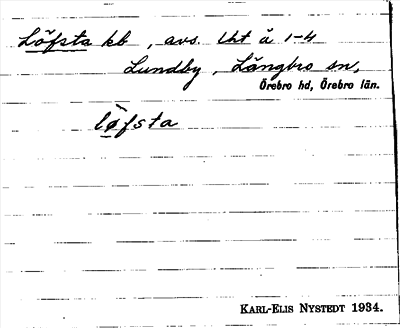 Löfsta kb, avs. Uht å 1-4
Lundby, Längbro sn,
Örebro hd, Örebro län.
lø̀fsta
KARL-ELIS NYSTEDT 1934.